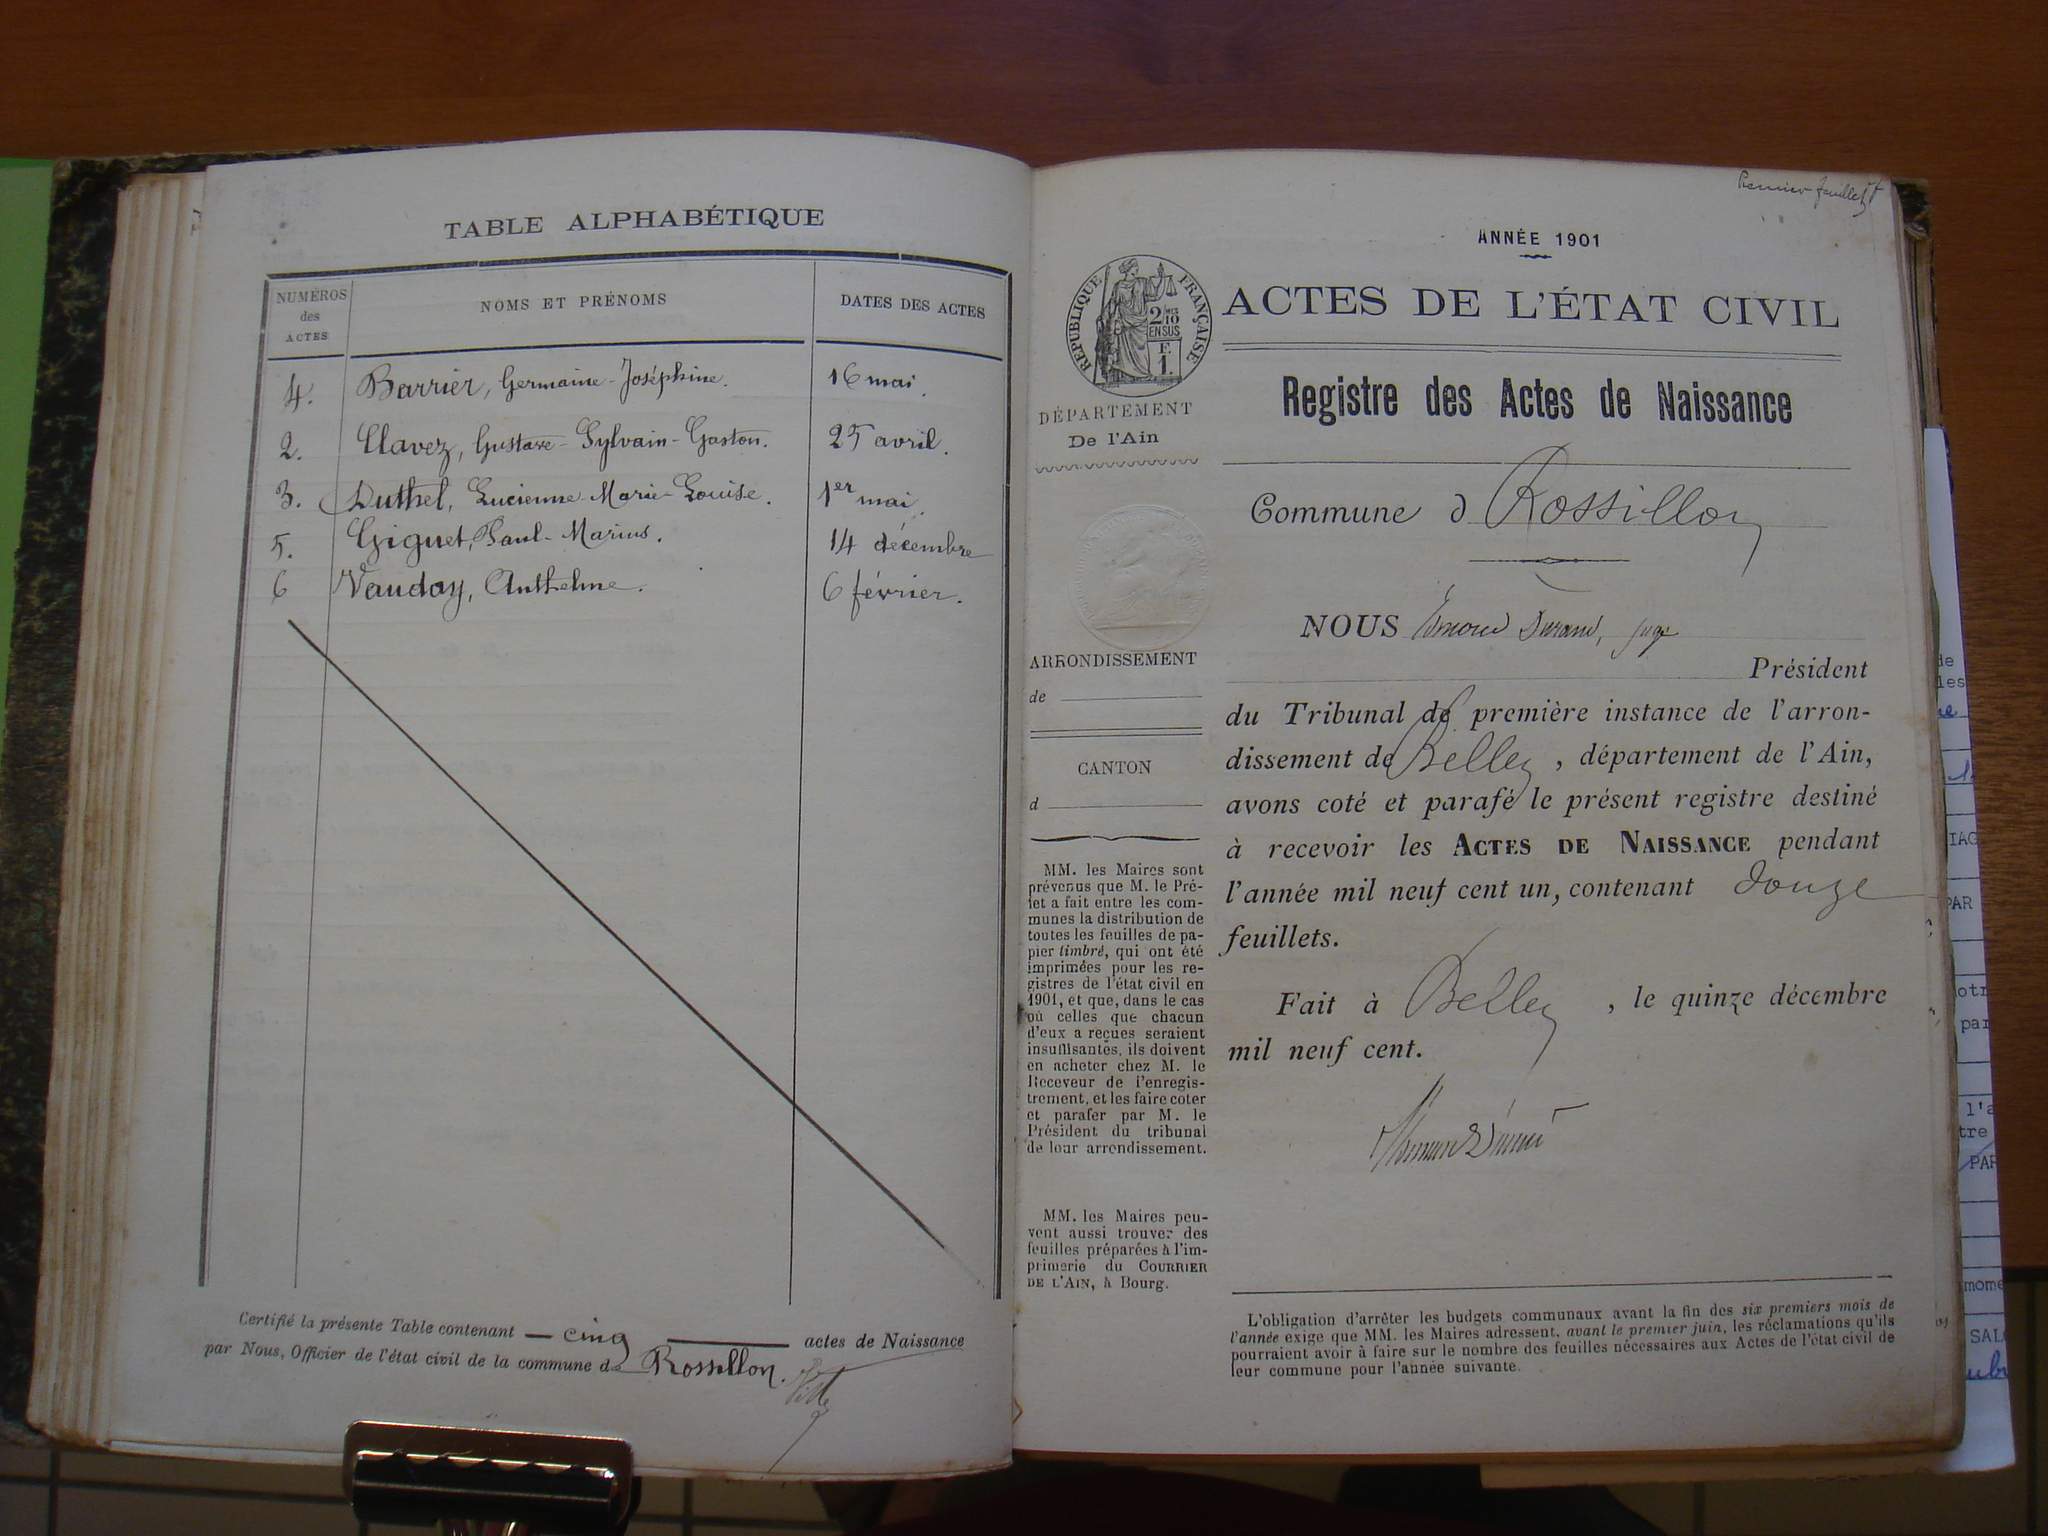 TABLE ALPHABÉTIQUE
NUMÉROS des ACTES
NOMS ET PRÉNOMS
DATES DES ACTES
4. Barrier, Germaine-Joséphine. 16 mai.
2. Clavez, Gustave-Sylvain-Gaston. 25 avril.
3. Duthel, Lucienne-Marie-Louise. 1er mai.
5. Giguet, Paul-Marius. 14 décembre
6 Vauday, Anthelme. 6 février.
Certifié la présente Table contenant — cinq — actes de Naissance
par Nous, Officier de l'état civil de la commune de Rossillon.
Premier feuillet
ANNÉE 1901
RÉPUBLIQUE FRANÇAISE
2/10
EN SUS
F.
1.
ACTES DE L'ÉTAT CIVIL
DÉPARTEMENT
De l'Ain
Registre des Actes de Naissance
Commune d Rossillon
NOUS Durand, juge
Président
du Tribunal de première instance de l'arron-
dissement de Belley, département de l'Ain,
avons coté et parafé le présent registre destiné
à recevoir les ACTES DE NAISSANCE pendant
l'année mil neuf cent un, contenant douze
feuillets.
Fait à Belley, le quinze décembre
mil neuf cent.
ARRONDISSEMENT
de
CANTON
d
MM. les Maires sont
prévenus que M. le Pré-
fet a fait entre les com-
munes la distribution de
toutes les feuilles de pa-
pier timbré, qui ont été
imprimées pour les re-
gistres de l'état civil en
1901, et que, dans le cas
où celles que chacun
d'eux a reçues seraient
insuffisantes, ils doivent
en acheter chez M. le
Receveur de l'enregis-
trement, et les faire coter
et parafer par M. le
Président du tribunal
de leur arrondissement.
MM. les Maires peu-
vent aussi trouver des
feuilles préparées à l'im-
primerie du COURRIER
DE L'AIN, à Bourg.
L'obligation d'arrêter les budgets communaux avant la fin des six premiers mois de
l'année exige que MM. les Maires adressent, avant le premier juin, les réclamations qu'ils
pourraient avoir à faire sur le nombre des feuilles nécessaires aux Actes de l'état civil de
leur commune pour l'année suivante.